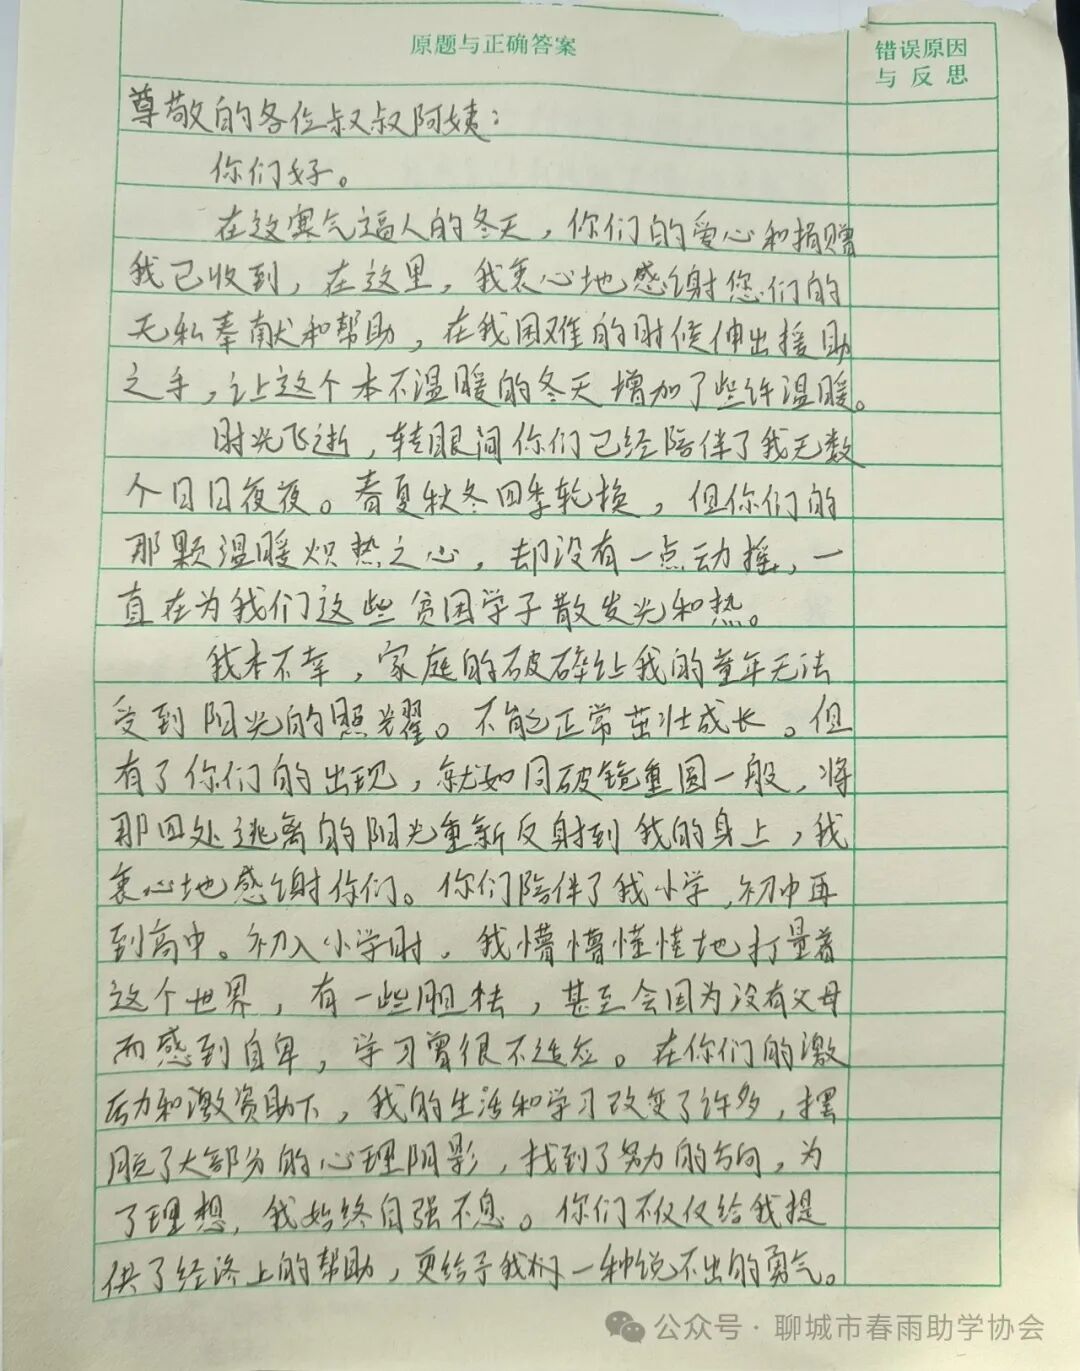 原题与正确答案
错误原因
与反思
尊敬的各位叔叔阿姨：
你们好。
在这寒气逼人的冬天，你们的爱心和捐赠
我已收到，在这里，我衷心地感谢您们的
无私奉献和帮助，在我困难的时候伸出援助
之手，让这个本不温暖的冬天增加了些许温暖。
时光飞逝，转眼间你们已经陪伴了我无数
个日日夜夜。春夏秋冬四季轮换，但你们的
那颗温暖炽热之心，却没有一点动摇，一
直在为我们这些贫困学子散发光和热。
我本不幸，家庭的破碎让我的童年无法
受到阳光的照耀。不能正常茁壮成长。但
有了你们的出现，就如同破镜重圆一般，将
那四处逃离的阳光重新反射到我的身上，我
衷心地感谢你们。你们陪伴了我小学，初中再
到高中。初入小学时，我懵懵懂懂地打量着
这个世界，有一些胆怯，甚至会因为没有父母
而感到自卑，学习曾很不适应。在你们的激
励和激资助下，我的生活和学习改变了许多，摆
脱了大部分的心理阴影，找到了努力的方向，为
了理想，我始终自强不息。你们不仅仅给我提
供了经济上的帮助，更给予我们一种说不出的勇气。
公众号·聊城市春雨助学协会